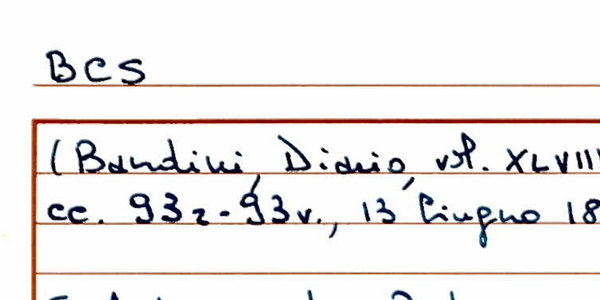 BCS
(Bandini, Diario, vol. XLVIII
cc. 93r-93v., 13 Giugno 18